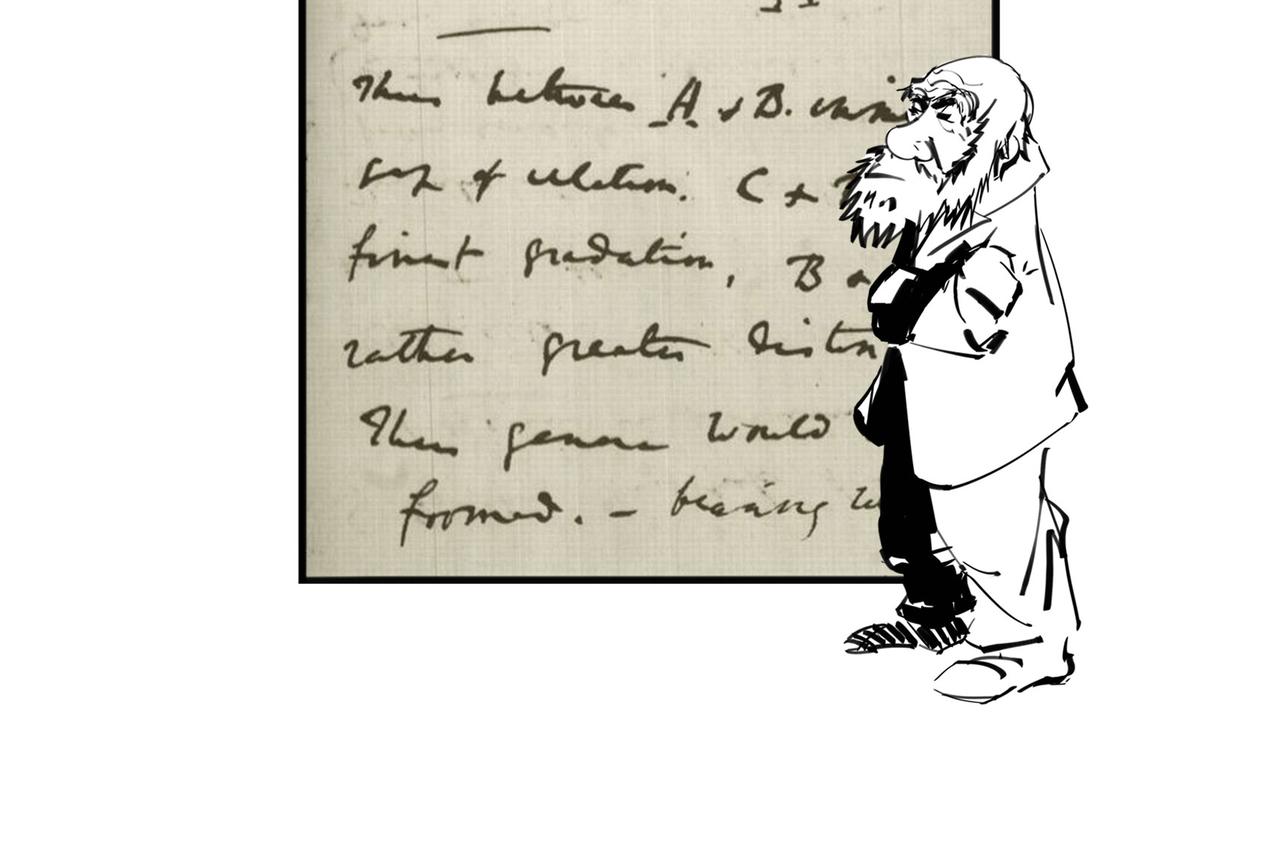 Thus between A & B.
gap of relation. C +
finest gradation, B
rather greater
Thus genera would
formed. – bearing